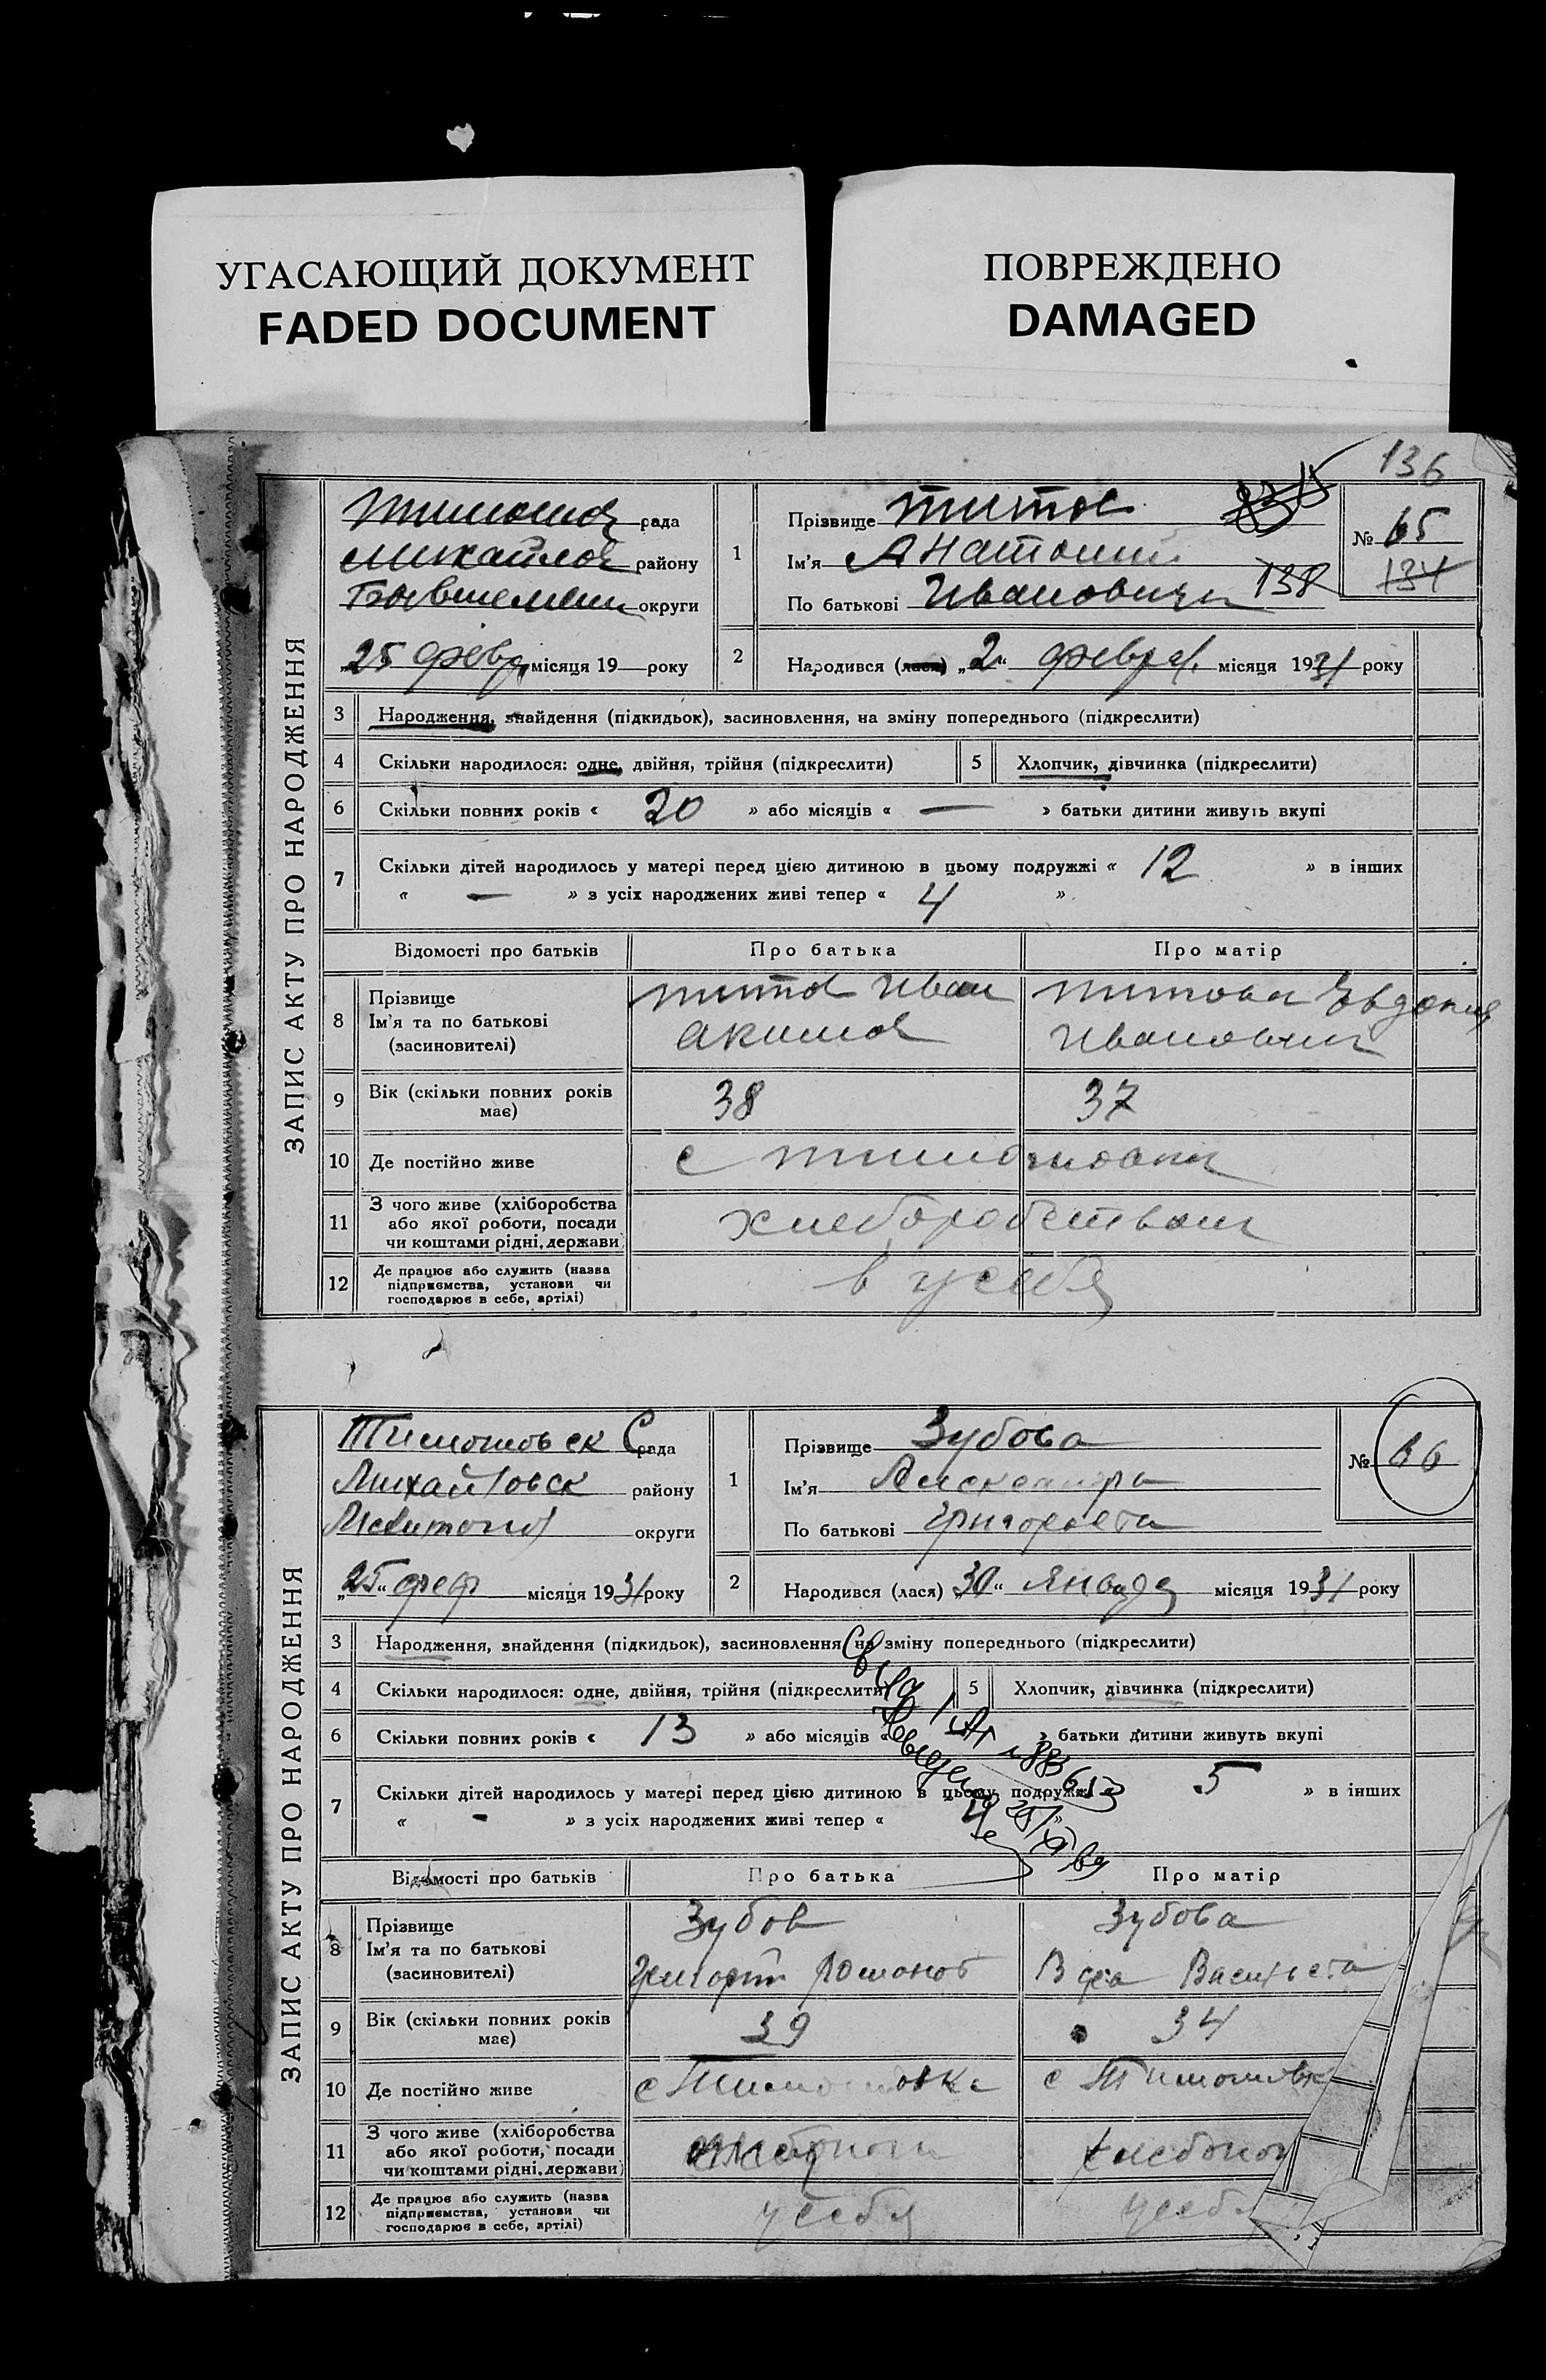 УГАСАЮЩИЙ ДОКУМЕНТ
FADED DOCUMENT
ПОВРЕЖДЕНО
DAMAGED
136
ЗАПИС АКТУ ПРО НАРОДЖЕННЯ
Тимошов рада
Михайлов району
Бывшемелит округи
„25 февр. місяця 19 року
1
Прізвище Титов
Ім'я Анатолий
По батькові Иванович 138
№ 65
134
2
Народився (лася) „2“ феврал. місяця 1931 року
3 Народження, знайдення (підкидьок), засиновлення, на зміну попереднього (підкреслити)
4 Скільки народилося: одне, двійня, трійня (підкреслити) 5 Хлопчик, дівчинка (підкреслити)
6 Скільки повних років « 20 » або місяців « — » батьки дитини живуть вкупі
7 Скільки дітей народилось у матері перед цією дитиною в цьому подружжі « 12 » в інших
« — » з усіх народжених живі тепер « 4 »
Відомості про батьків Про батька Про матір
8 Прізвище
Ім'я та по батькові
(засиновителі)
Титов Иван
Акимов
Титова Евдокия
Ивановна
9 Вік (скільки повних років має) 38 37
10 Де постійно живе с Тимошовка
11 З чого живе (хліборобства
або якої роботи, посади
чи коштами рідні, держави)
хлеборобством
12 Де працює або служить (назва
підприємства, установи чи
господарює в себе, артілі)
в усебя
ЗАПИС АКТУ ПРО НАРОДЖЕННЯ
Тимошовск С рада
Михайловск району
Мелитопол округи
„25“ фев місяця 1931 року
1
Прізвище Зубова
Ім'я Александра
По батькові Григорьевна
№ 66
2
Народився (лася) „30“ января місяця 1931 року
3 Народження, знайдення (підкидьок), засиновлення на зміну попереднього (підкреслити)
4 Скільки народилося: одне, двійня, трійня (підкреслити) 5 Хлопчик, дівчинка (підкреслити)
6 Скільки повних років « 13 » або місяців « » батьки дитини живуть вкупі
7 Скільки дітей народилось у матері перед цією дитиною в цьому подружжі 5 » в інших
« - » з усіх народжених живі тепер « 4 »
Відомості про батьків Про батька Про матір
8 Прізвище
Ім'я та по батькові
(засиновителі)
Зубов
Григорий Романов
Зубова
Вера Васильевна
9 Вік (скільки повних років має) 39 34
10 Де постійно живе с Тимошовка с Тимошовка
11 З чого живе (хліборобства
або якої роботи, посади
чи коштами рідні, держави)
12 Де працює або служить (назва
підприємства, установи чи
господарює в себе, артілі)
у себя у себя